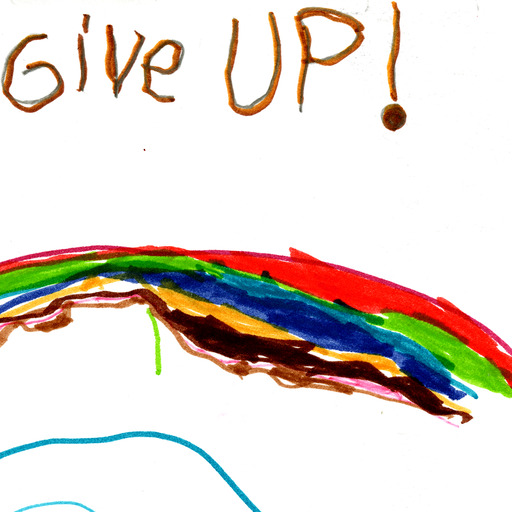 Give UP!